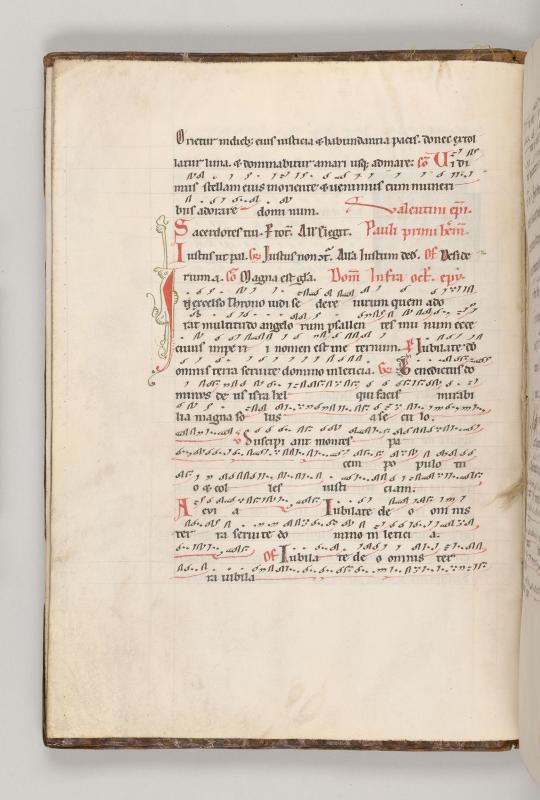 Orietur indieb; eius iusticia & habundantia pacis. donec extol
latur luna. & dominabitur amari usq; admare: Co Ui di
mus stellam eius inoriente & uenimus cum muneri
bus adorare domi num. Valentini epi.
Sacerdotes tui. Pauli primi
Iustus ut pal. Iustus non Alla Iustum ded. Of Deside
rium a. Co Magna est gla. Dom Infra oct. epy.
In excelso throno uidi se dere uirum quem ado
rat multitudo angelo rum psallen tes in unum ecce
cuius imperi i nomen est in e ternum. Iubilate do
omnis terra seruite domino in leticia. Be enedictus do
minus de us isra hel qui facis mirabi
lia magna so lus a se cu lo.
V Suscipi ant montes pa
cem po pulo tu
o & col les iusti ciam.
A eui a Iubilate de o om nis
ter ra seruite do mino in letici a.
Of Iubila te de o omnis ter
ra iubila